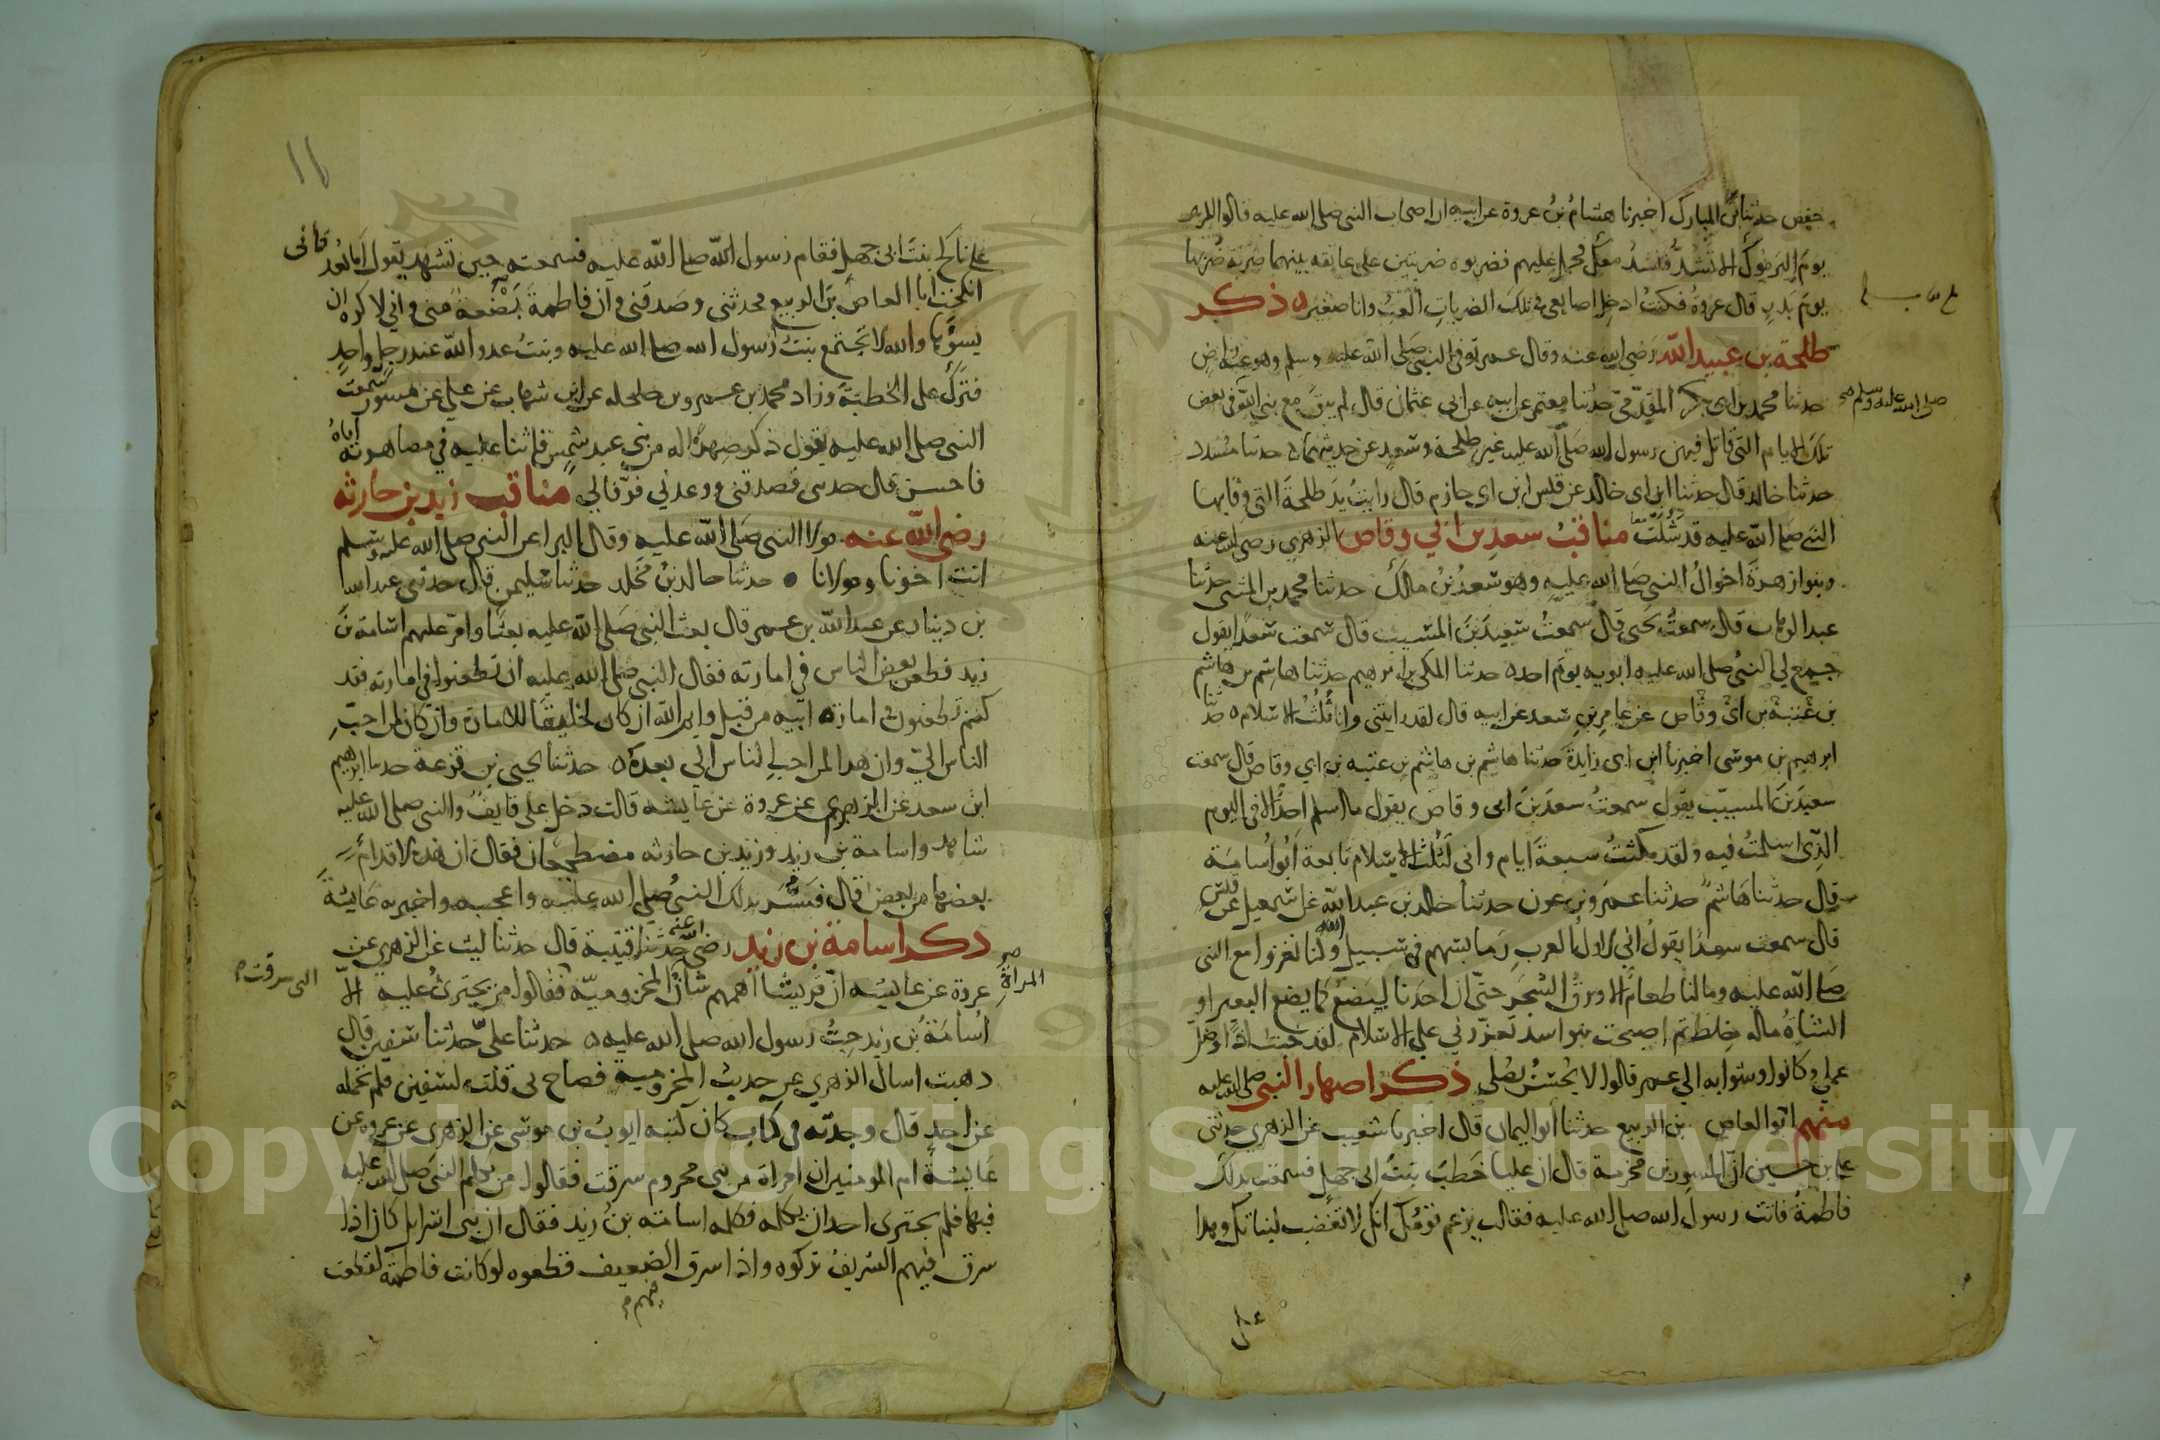 حفص حدثنا ابن المبارك اخبرنا هشام بن عروة عن ابيه ان اصحاب النبي صلى الله عليه قالوا للزبير
يوم اليرموك الا تشد فنشد معك فحمل عليهم فضربوه ضربتين على عاتقه بينهما ضربة ضربها
يوم بدر قال عروة فكنت ادخل اصابعي في تلك الضربات العب وانا صغير ذكر
طلحة بن عبيد الله رضي الله عنه وقال عمر توفي النبي صلى الله عليه وسلم وهو عنه راض
حدثنا محمد بن ابي بكر المقدمي حدثنا معتمر عن ابيه عن ابي عثمان قال لم يبق مع نبي الله في بعض
صلى الله عليه وسلم
تلك الايام التي قاتل فيهن رسول الله صلى الله عليه غير طلحة وسعد عن حديثهما حدثنا مسدد
حدثنا خالد قال حدثنا ابن ابي خالد عن قيس ابن ابي حازم قال رايت يد طلحة التي وقا بها
النبي صلى الله عليه قد شلت مناقب سعد بن ابي وقاص الزهري رضي الله عنه
وبنو ازهرة اخوال النبي صلى الله عليه وهو سعد بن مالك حدثنا محمد بن المثنى حدثنا
عبد الوهاب قال سمعت يحيى قال سمعت سعيد بن المسيب قال سمعت سعدا يقول
جمع لي النبي صلى الله عليه ابويه يوم احد حدثنا المكي بن ابرهيم حدثنا هاشم بن هاشم
بن عتبة بن ابي وقاص عن عامر بن سعد عن ابيه قال لقد رايتني وانا ثلث الاسلام حدثنا
ابرهيم بن موسى اخبرنا ابن ابي زايدة حدثنا هاشم بن هاشم بن عتبه بن ابي وقاص قال سمعت
سعيد بن المسيب يقول سمعت سعد بن ابي وقاص يقول ما اسلم احد الا في اليوم
الذي اسلمت فيه ولقد مكثت سبعة ايام واني لثلث الاسلام تابعة ابو اسامة
قال حدثنا هاشم حدثنا عمرو بن عون حدثنا خالد بن عبد الله عن اسمعيل عن قيس
قال سمعت سعدا يقول اني لاول العرب رما بسهم في سبيل الله وكنا نغزوا مع النبي
صلى الله عليه وما لنا طعام الا ورق الشجر حتى ان احدنا ليضع كما يضع البعير او
الشاة ماله خلط ثم اصبحت بنو اسد تعزرني على الاسلام لقد خبت اذا وضل
عملي وكانوا وشوا به الى عمر قالوا لا يحسن يصلي ذكر اصهار النبي صلى الله عليه
منهم ابو العاص بن الربيع حدثنا ابو اليمان قال اخبرنا شعيب عن الزهري حدثني
علي بن حسين ان المسور بن مخرمة قال ان عليا خطب بنت ابي جهل فسمعت بذلك
فاطمة فاتت رسول الله صلى الله عليه فقالت يزعم قومك انك لا تغضب لبناتك وهذا
علي
١١
علي ناكح بنت ابي جهل فقام رسول الله صلى الله عليه فسمعته حين تشهد يقول اما بعد فاني
انكحت ابا العاص بن الربيع فحدثني وصدقني وان فاطمة بضعة مني واني لاكره ان
يسوها والله لا تجتمع بنت رسول الله صلى الله عليه وبنت عدو الله عند رجل واحد
فترك علي الخطبة وزاد محمد بن عمرو بن حلحله عن ابن شهاب عن علي عن مسور سمعت
النبي صلى الله عليه يقول ذكر صهرا له من بني عبد شمس فاثنا عليه في مصاهرته اياه
فاحسن قال حدثني فصدقني ووعدني فوفا لي مناقب زيد بن حارثه
رضي الله عنه مولا النبي صلى الله عليه وقال البرا عن النبي صلى الله عليه وسلم
انت اخونا ومولانا حدثنا خالد بن مخلد حدثنا سليمن قال حدثني عبد الله
بن دينار عن عبد الله بن عمر قال بعث النبي صلى الله عليه بعثا وامر عليهم اسامة بن
زيد فطعن بعض الناس في امارته فقال النبي صلى الله عليه ان تطعنوا في امارته فقد
كنتم تطعنون في امارة ابيه من قبل وايم الله ان كان لخليقا للامارة وان كان لمن احب
الناس الي وان هذا لمن احب الناس الي بعده حدثنا يحيى بن قزعة حدثنا ابرهيم
ابن سعد عن الزهري عن عروة عن عايشه قالت دخل علي قايف والنبي صلى الله عليه
شاهد واسامة بن زيد وزيد بن حارثه مضطجعان فقال ان هذه الاقدام
بعضها من بعض قال فسر بذلك النبي صلى الله عليه واعجبه واخبر به عايشة
ذكر اسامة بن زيد رضي الله عنه حدثنا قتيبة قال حدثنا ليث عن الزهري عن
عروة عن عايشه ان قريشا اهمهم شان المخزومية فقالوا من يجترئ عليه الا
المراة
التي سرقت
اسامة بن زيد حب رسول الله صلى الله عليه حدثنا علي حدثنا سفين قال
ذهبت اسال الزهري عن حديث المخزومية فصاح بي قلت لسفين فلم تحمله
عن احد قال وجدته في كتاب كان كتبه ايوب بن موسى عن الزهري عن عروه عن
عايشة ام المومنين ان امراة من بني مخزوم سرقت فقالوا من يكلم النبي صلى الله عليه
فيها فلم يجترئ احد ان يكلمه فكلمه اسامة بن زيد فقال ان بني اسرايل كان اذا
سرق فيهم الشريف تركوه واذا سرق الضعيف قطعوه لو كانت فاطمة لقطعت
فيهم
Copyright © King Saud University